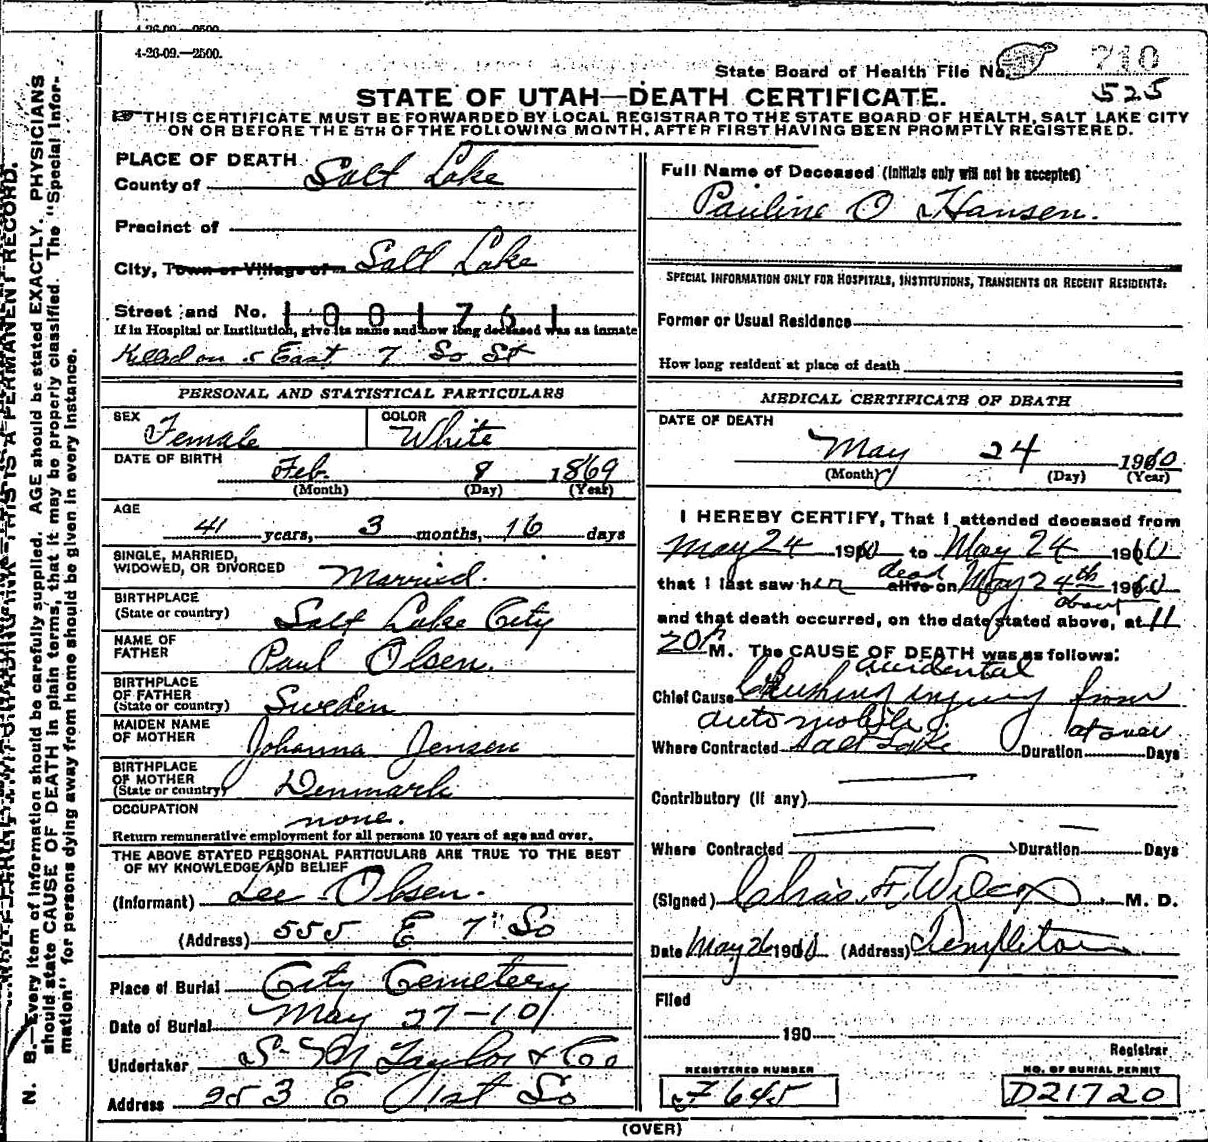 4-26-09.—2500.
4-26-09.—2500.
State Board of Health File No. 210
525
STATE OF UTAH—DEATH CERTIFICATE.
THIS CERTIFICATE MUST BE FORWARDED BY LOCAL REGISTRAR TO THE STATE BOARD OF HEALTH, SALT LAKE CITY
ON OR BEFORE THE 5TH OF THE FOLLOWING MONTH, AFTER FIRST HAVING BEEN PROMPTLY REGISTERED.
PLACE OF DEATH
County of Salt Lake
Precinct of
City, Town or Village of Salt Lake
Street and No. 1001761
If in Hospital or Institution, give its name and how long deceased was an inmate
Killed on 5 East 7 So St
PERSONAL AND STATISTICAL PARTICULARS
SEX Female COLOR White
DATE OF BIRTH Feb. 8 1869
(Month) (Day) (Year)
AGE
41 years, 3 months, 16 days
SINGLE, MARRIED,
WIDOWED, OR DIVORCED Married.
BIRTHPLACE
(State or country) Salt Lake City
NAME OF
FATHER Paul Olsen.
BIRTHPLACE
OF FATHER
(State or country) Sweden
MAIDEN NAME
OF MOTHER Johanna Jensen
BIRTHPLACE
OF MOTHER
(State or country) Denmark
OCCUPATION none.
Return remunerative employment for all persons 10 years of age and over.
THE ABOVE STATED PERSONAL PARTICULARS ARE TRUE TO THE BEST
OF MY KNOWLEDGE AND BELIEF
(Informant) Lee Olsen.
(Address) 555 E 7" So
Place of Burial City Cemetery
Date of Burial May 27-10
Undertaker S. M Taylor & Co
Address 253 E 1st So
Full Name of Deceased (Initials only will not be accepted)
Pauline O Hansen.
SPECIAL INFORMATION ONLY FOR HOSPITALS, INSTITUTIONS, TRANSIENTS OR RECENT RESIDENTS:
Former or Usual Residence
How long resident at place of death
MEDICAL CERTIFICATE OF DEATH
DATE OF DEATH
May 24 1910
(Month) (Day) (Year)
I HEREBY CERTIFY, That I attended deceased from
May 24 1910 to May 24 1910
that I last saw her alive dead on May 24th 1910
and that death occurred, on the date stated above, at about 11
20 P. M. The CAUSE OF DEATH was as follows:
accidental
Chief Cause Crushing injury from
automobile
Where Contracted Salt Lake Duration at once Days
Contributory (if any)
Where Contracted Duration Days
(Signed) Chas. F. Wilcox M. D.
Date May 26 1910 (Address) Templeton
Filed
190
Registrar
REGISTERED NUMBER
NO. OF BURIAL PERMIT
F645
D21720
(OVER)
N. B.—Every item of information should be carefully supplied. AGE should be stated EXACTLY. PHYSICIANS
should state CAUSE OF DEATH in plain terms, that it may be properly classified. The "Special Infor-
mation" for persons dying away from home should be given in every instance.
THIS IS A PERMANENT RECORD.